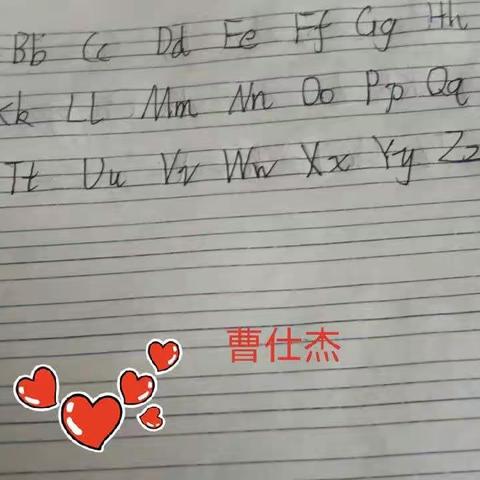 Bb Cc Dd Ee Ff Gg Hh
Kk Ll Mm Nn Oo Pp Qq
Tt Uu Vv Ww Xx Yy Zz
曹仕杰